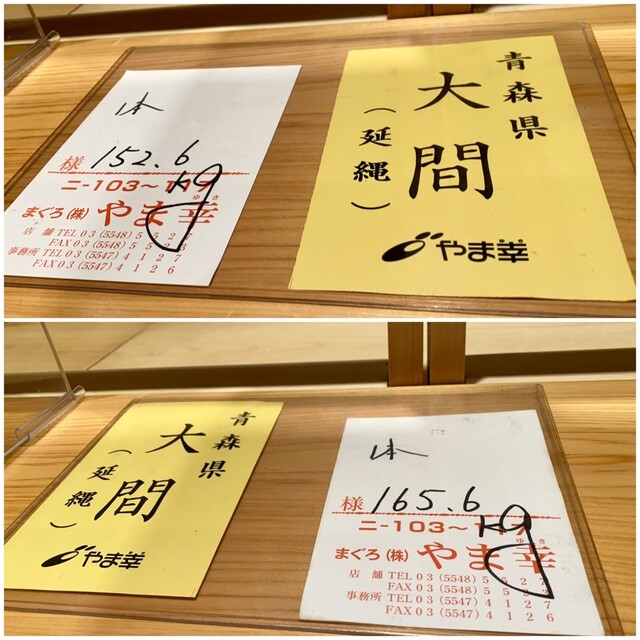 様 152.6
kg
ニ-103~117
まぐろ(株) やま幸
ゆき
店 舗 TEL 03 (5548) 5527
FAX 03 (5548) 5523
事務所 TEL 03 (5547) 4127
FAX 03 (5547) 4126
青森県
大間
(延縄)
やま幸
青森県
大間
(延縄)
やま幸
様 165.6
kg
ニ-103~117
まぐろ(株) やま幸
ゆき
店 舗 TEL 03 (5548) 5527
FAX 03 (5548) 5523
事務所 TEL 03 (5547) 4127
FAX 03 (5547) 4126